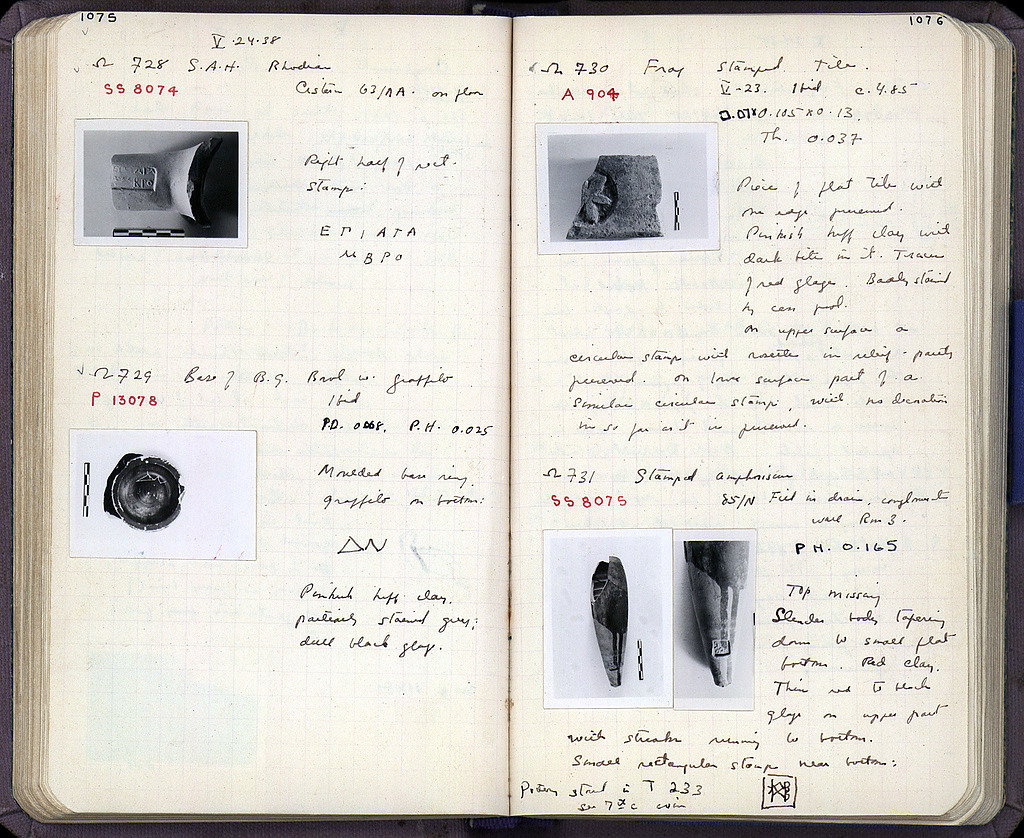 1075
V·24·38
Ω 728 S.A.H. Rhodian
SS 8074 Cistern 63/AA. on floor
Right half of rect.
stamp:
ΕΠΙ ΑΓΑ
ΜΒΡΟ
Ω 729 Base of B.G. Bowl w. graffito
P 13078 Ibid
P.H. 0.025
Moulded base ring.
graffito on bottom:
ΔΝ
Pinkish buff clay,
partially stained grey;
dull black glaze.
1076
Ω 730 Frag stamped tile.
A 904 V-23. Ibid c. 4.85
0.07 x 0.105 x 0.13.
Th. 0.037
Piece of flat tile with
one edge preserved.
Pinkish buff clay with
dark bits in it. Traces
of red glaze. Badly stained
by cess pool.
On upper surface a
circular stamp with rosette in relief - partly
preserved. On lower surface part of a
similar circular stamp, with no decoration
in so far as it is preserved.
Ω 731 Stamped amphoriscus
SS 8075 85/N Fill in drain, conglomerate
wall Rm 3.
P.H. 0.165
Top missing
Slender body tapering
down to small flat
bottom. Red clay.
Thin red to black
glaze on upper part
with streaks running to bottom.
Small rectangular stamp near bottom:
T 233
see 7th c coin